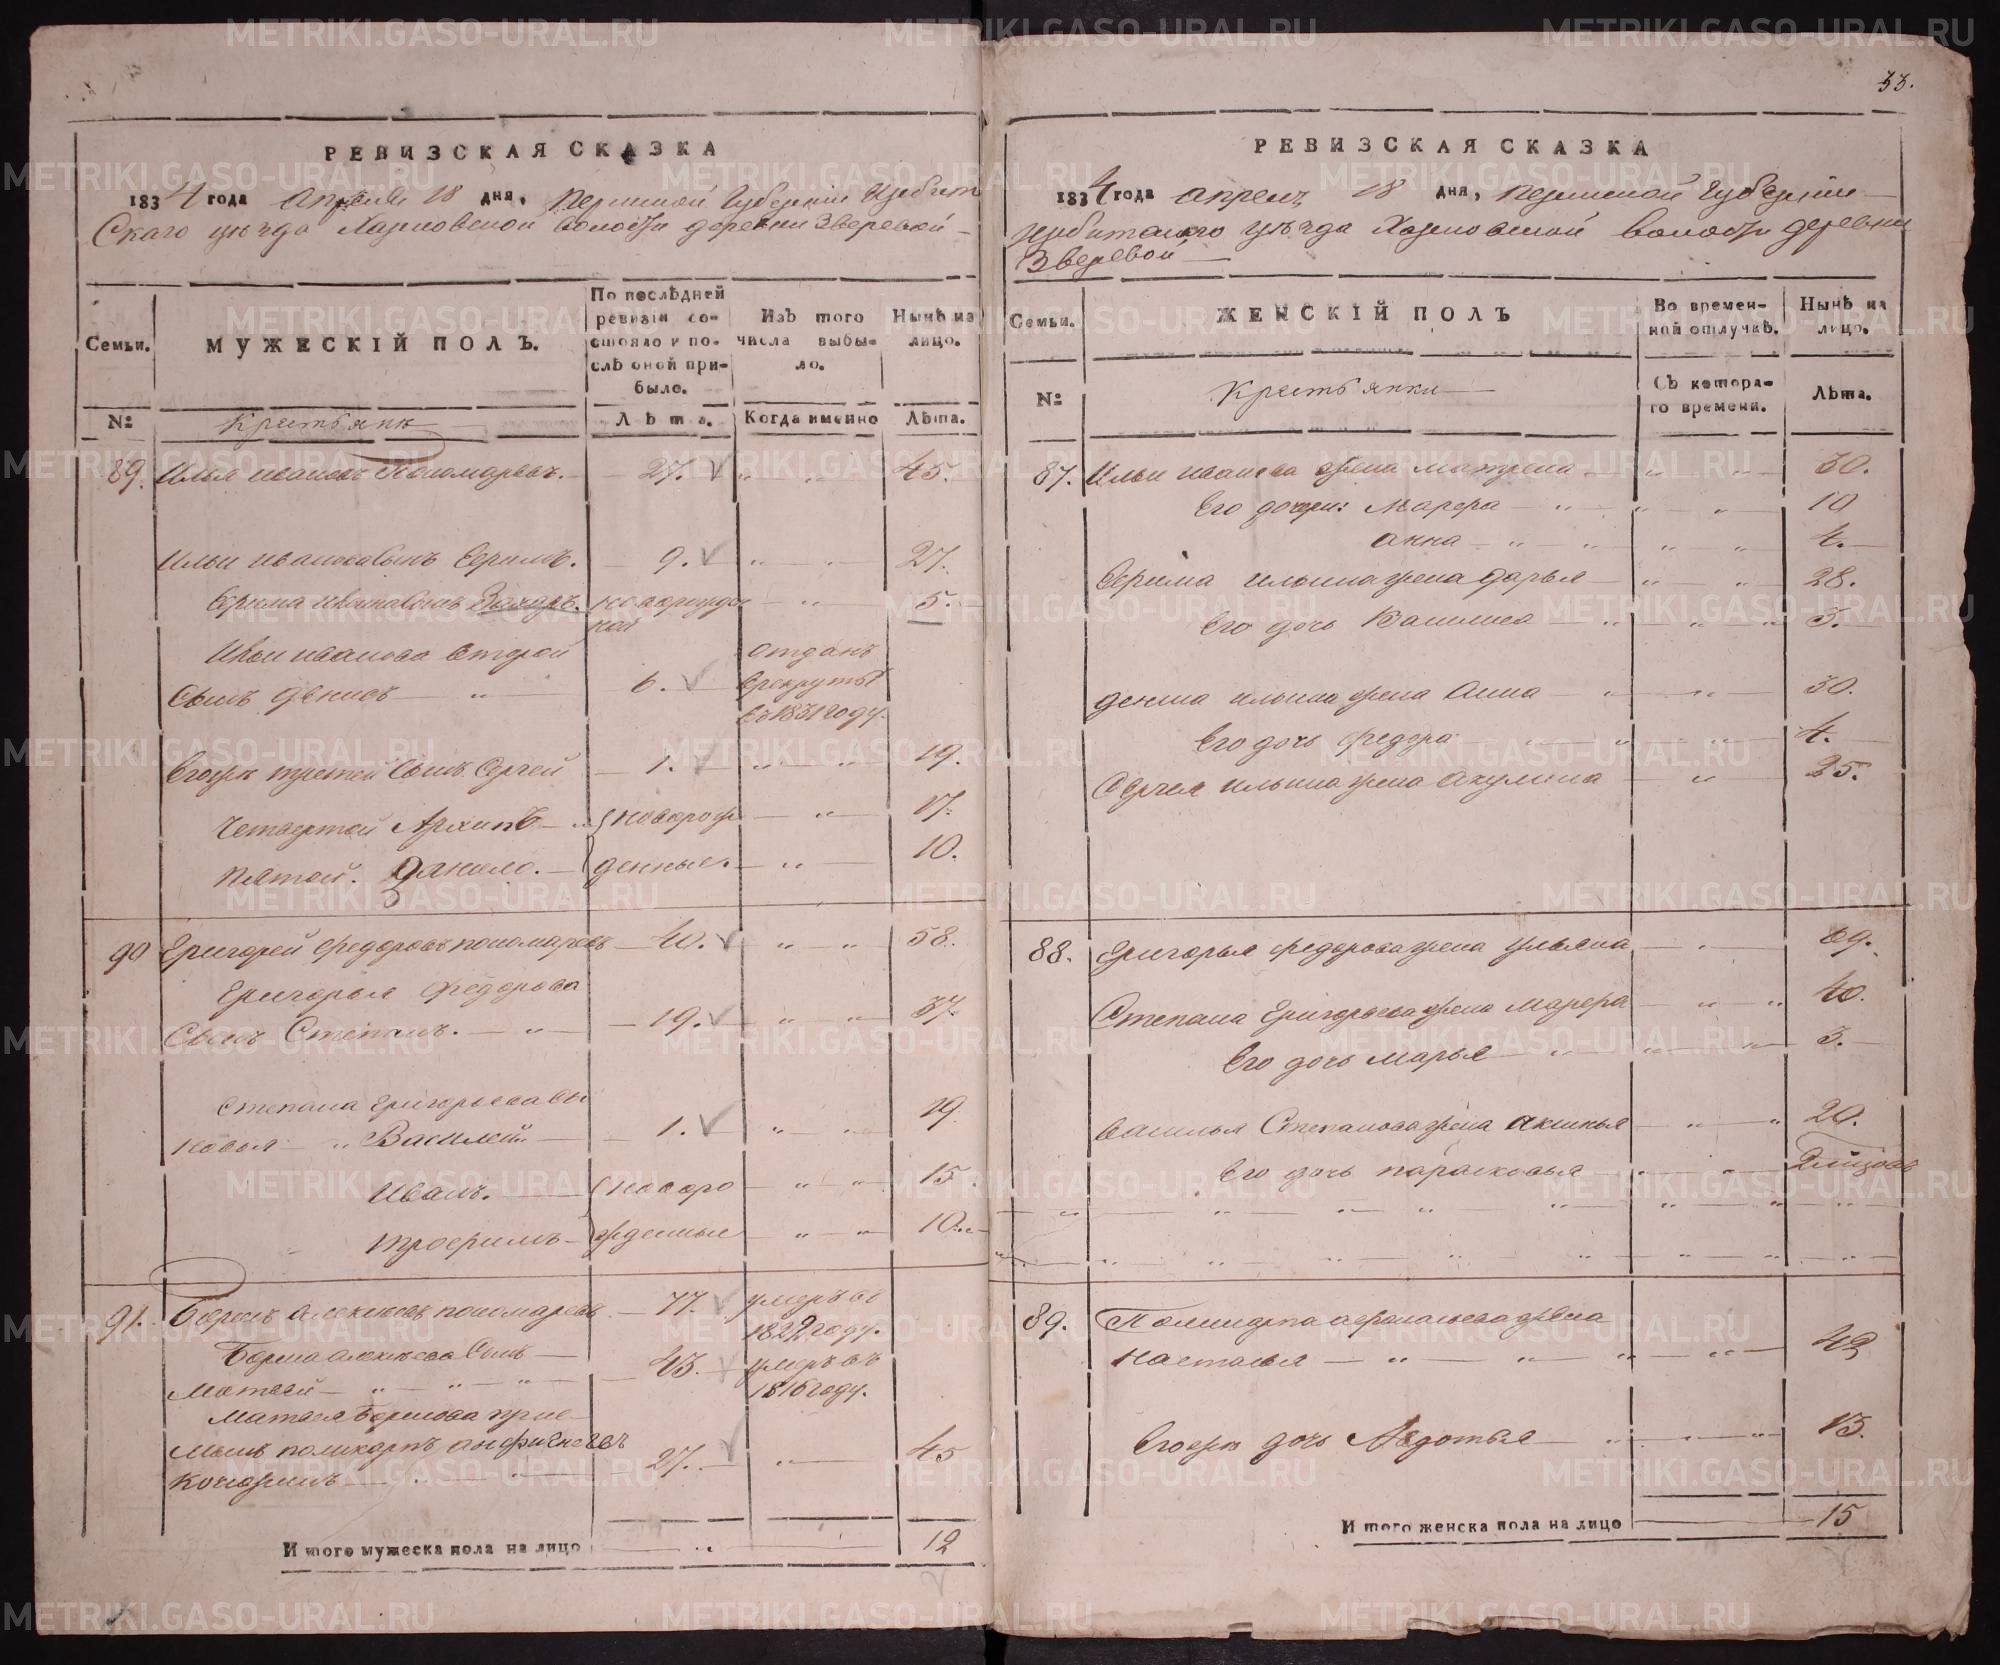 33.
РЕВИЗСКАЯ СКАЗКА
1834 года апреля 18 дня, Пермской Губернiи Ирбит
Скаго уѣзда Харловской волости деревни Зверевой
Семьи.
МУЖЕСКIЙ ПОЛЪ.
По послѣдней
ревизiи со-
стояло и по-
слѣ оной при-
было.
Изъ того
числа выбы-
ло.
Нынѣ на
лицо.
№
Крестьяне
Лѣта.
Когда именно
Лѣта.
89. Илья Ивановъ Пономаревъ. 27. " " 45.
Ильи Иванова Сынъ Ефимъ. 9. " " 27.
Ефима Сынъ Захаръ. новорожден " 5.
ной
Ильи Иванова второй отданъ
Сынъ Денисъ " 6. врекруты
въ 1831 году.
Егоже третей Сынъ Сергей 1. " " 19.
Четвертой Архипъ новорож " 17.
Пятой. Данило. денные. " 10.
90 Григорей Федоровъ Пономаревъ 40. " " 58.
Григорья Федорова
Сынъ Степанъ. " 19. " " 37.
Степана Григорьева сы
новья " Василей 1. " " 19.
Иванъ. новоро " " 15.
Трофимъ жденные " " 10.
91. Борисъ Алексеевъ Пономаревъ 77. умеръ въ
1822 году.
Бориса Алексеева Сынъ
Матвей " " " 43. умеръ въ
1816 году.
Матвея Борисова прие
мышъ Поликарпъ 27. " 45
Итого мужеска пола на лицо " 12
РЕВИЗСКАЯ СКАЗКА
1834 года апреля 18 дня, Пермской Губернiи
Ирбитскаго уѣзда Харловской волости деревни
Зверевой
Семьи.
ЖЕНСКIЙ ПОЛЪ
Во времен-
ной отлучкѣ.
Нынѣ на
лицо.
№
Крестьянки
Съ котора-
го времени.
Лѣта.
87. Ильи Иванова жена Матрена " " 30.
Его дочери: Марфа " " " 10
Анна " " " " 4.
Ефима Ильина жена Дарья " " 28.
Его дочь Василиса " " " 3.
Дениса Ильина жена Анна " " 30.
Его дочь Федора " " 4.
Сергея Ильина жена Акулина " 25.
88. Григорья Федорова жена Ульяна " 69.
Степана Григорьева жена Марфа " " 40.
Его дочь Марья " " " 3.
Василья Степанова жена Аксинья " " 20.
Его дочь Парасковья " "
89. Поликарпа жена
Настасья " " " " 49
Егоже дочь Авдотья " " " 13.
Итого женска пола на лицо 15
METRIKI.GASO-URAL.RU